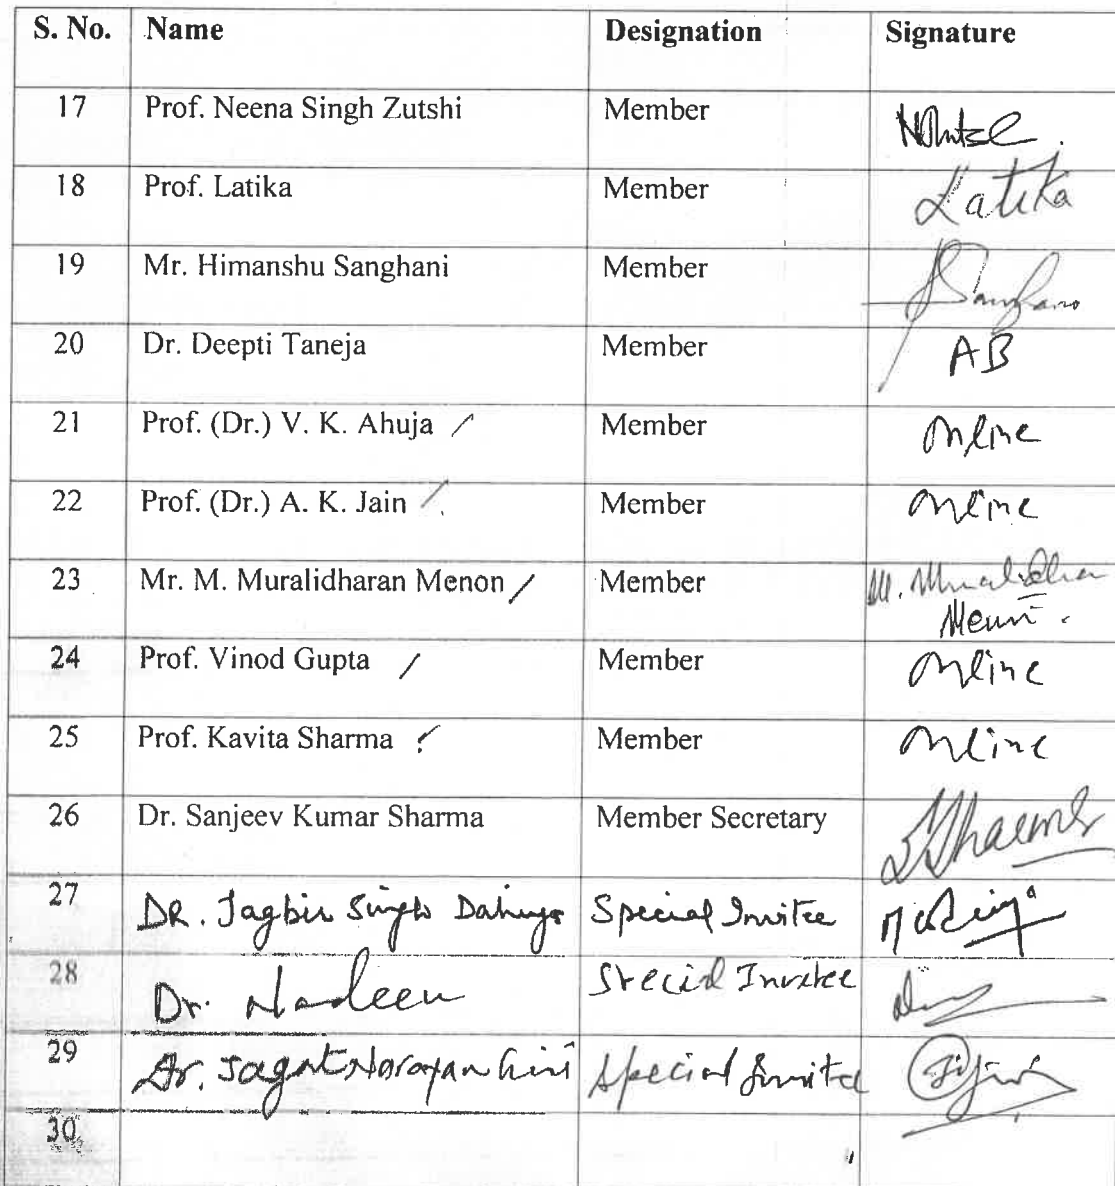 S. No. Name Designation Signature
17 Prof. Neena Singh Zutshi Member
18 Prof. Latika Member Latika
19 Mr. Himanshu Sanghani Member
20 Dr. Deepti Taneja Member AB
21 Prof. (Dr.) V. K. Ahuja Member Online
22 Prof. (Dr.) A. K. Jain Member Online
23 Mr. M. Muralidharan Menon Member M. Muralidharan
Menon.
24 Prof. Vinod Gupta Member Online
25 Prof. Kavita Sharma Member Online
26 Dr. Sanjeev Kumar Sharma Member Secretary
27 DR. Jagbir Singh Special Invitee
28 Dr. Special Invitee
29 Dr. Jagat Narayan Giri Special Invitee
30